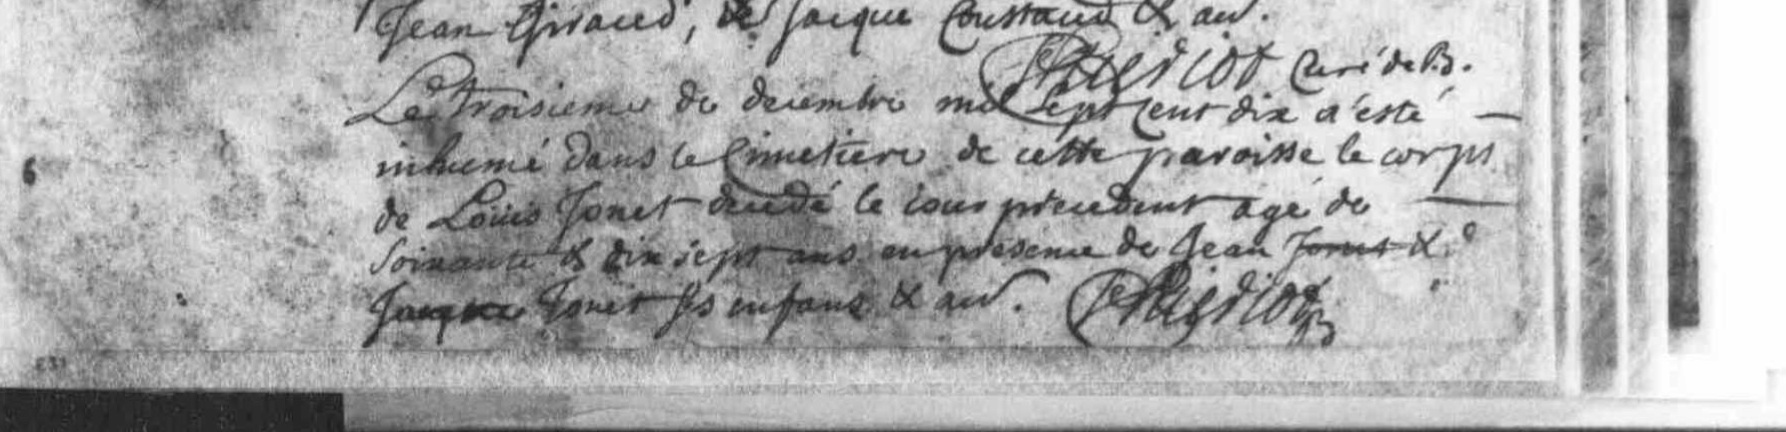 Jean Giraud, de Jacque Coustaud & au.
Curé de B.
Le troisieme de decembre mil sept cent dix a esté
inhumé dans le Cimetiere de cette paroisse le corps
de Loüis Jonet decedé le iour precedent agé de
Soixante & dix sept ans en presence de Jean Jonet &
Jacque Jonet ses enfans & au.